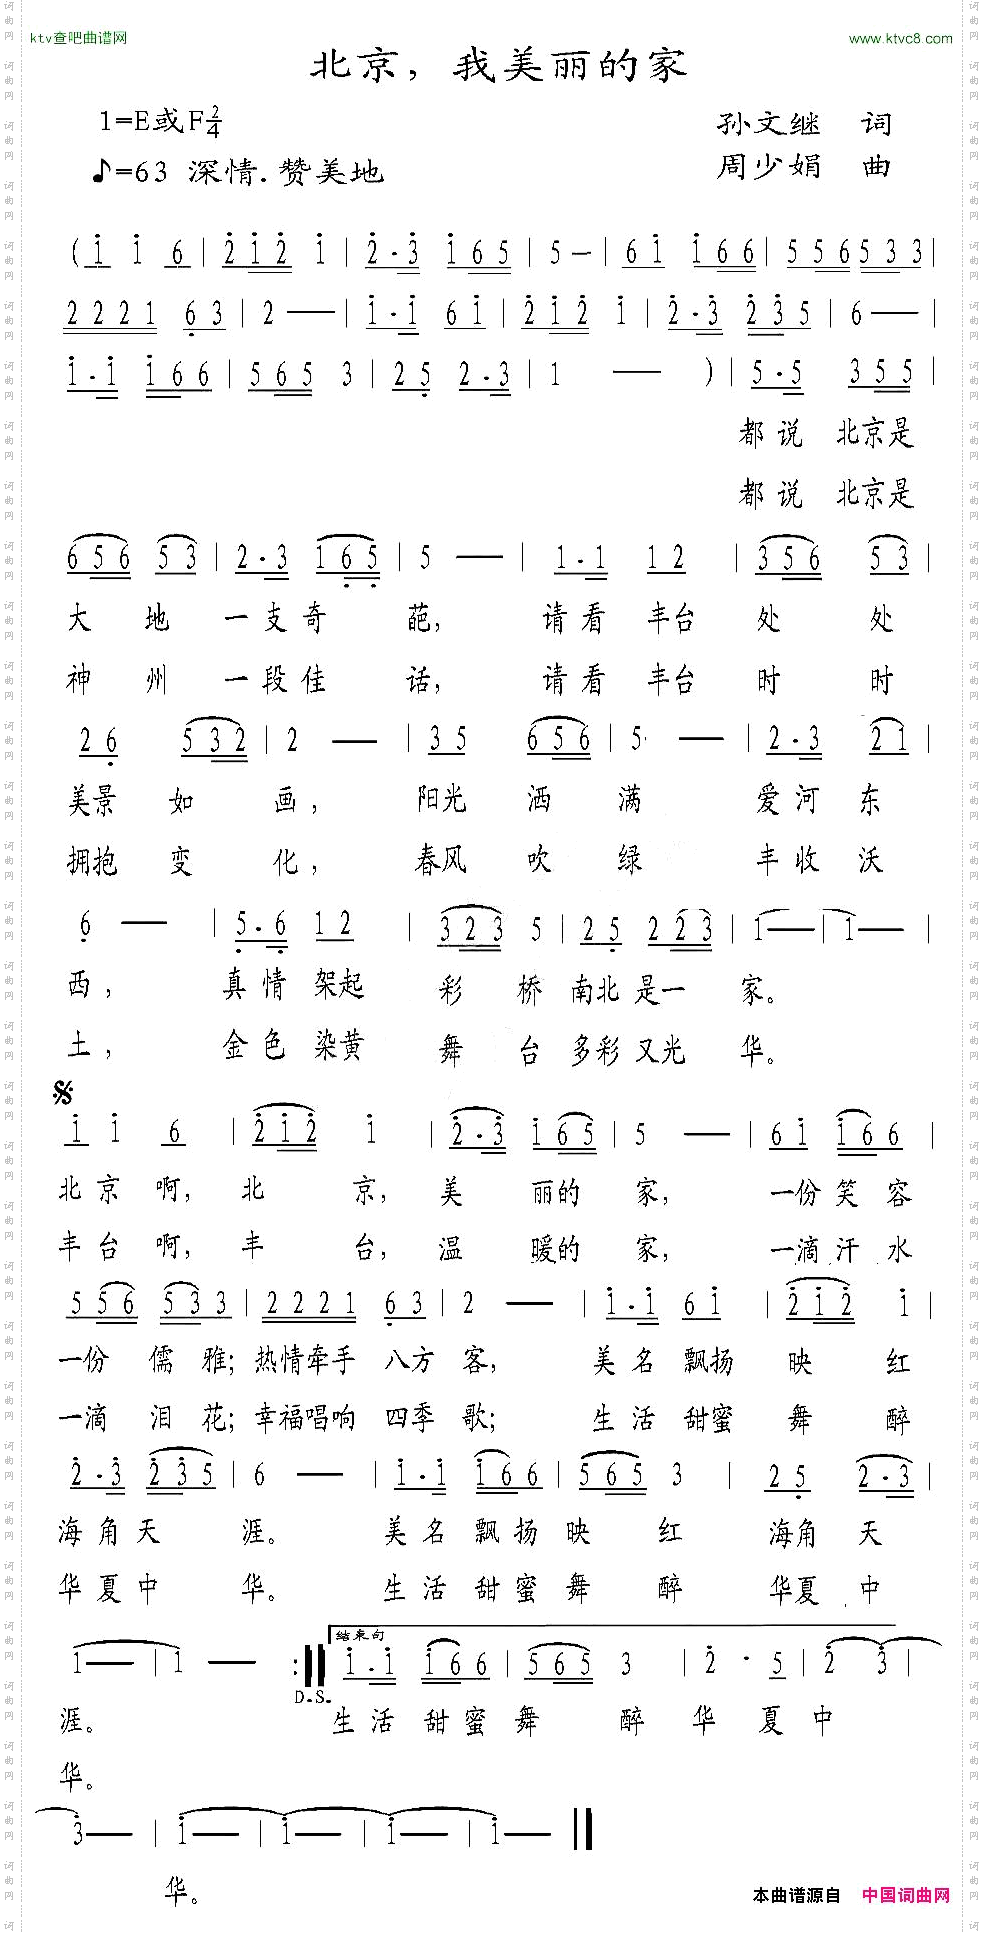 ktv查吧曲谱网
www.ktvc8.com
北京，我美丽的家
1=E或F2/4
孙文继 词
♪=63 深情.赞美地
周少娟 曲
(i i 6 | 2 i 2 i | 2·3 i 6 5 | 5 — | 6 i i 6 6 | 5 5 6 5 3 3 |
2 2 2 1 6 3 | 2 — | i·i 6 i | 2 i 2 i | 2·3 2 3 5 | 6 — |
i·i i 6 6 | 5 6 5 3 | 2 5 2·3 | 1 — ) | 5·5 3 5 5 |
都说 北京是
都说 北京是
6 5 6 5 3 | 2·3 1 6 5 | 5 — | 1·1 1 2 | 3 5 6 5 3 |
大 地 一支奇 葩， 请看丰台 处 处
神 州 一段佳 话， 请看丰台 时 时
2 6 5 3 2 | 2 — | 3 5 6 5 6 | 5 — | 2·3 2 1 |
美景 如 画， 阳光 洒 满 爱河 东
拥抱 变 化， 春风 吹 绿 丰收 沃
6 — | 5·6 1 2 | 3 2 3 5 | 2 5 2 2 3 | 1 — | 1 — |
西， 真情 架起 彩 桥 南北是一 家。
土， 金色 染黄 舞 台 多彩又光 华。
i i 6 | 2 i 2 i | 2·3 i 6 5 | 5 — | 6 i i 6 6 |
北京啊，北 京，美 丽的 家， 一份笑容
丰台啊，丰 台，温 暖的 家， 一滴汗水
5 5 6 5 3 3 | 2 2 2 1 6 3 | 2 — | i·i 6 i | 2 i 2 i |
一份 儒 雅；热情牵手 八方 客， 美名飘扬 映 红
一滴 泪 花；幸福唱响 四季 歌； 生活甜蜜 舞 醉
2·3 2 3 5 | 6 — | i·i i 6 6 | 5 6 5 3 | 2 5 2·3 |
海角天 涯。 美名飘扬映 红 海角 天
华夏中 华。 生活甜蜜舞 醉 华夏 中
结束句
1 — | 1 — :‖ i·i i 6 6 | 5 6 5 3 | 2 · 5 | 2 3 |
D.S.
涯。 生活甜蜜舞 醉 华 夏 中
华。
3 — | i — | i — | i — | i — ‖
华。
本曲谱源自 中国词曲网